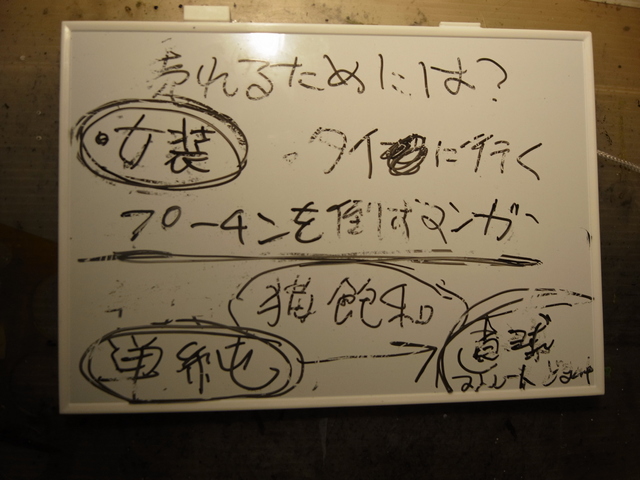 売れるためには?
・女装 ・タイに行く
プーチンを倒すマンガ
猫飽和
単純 → 直球
ストレート